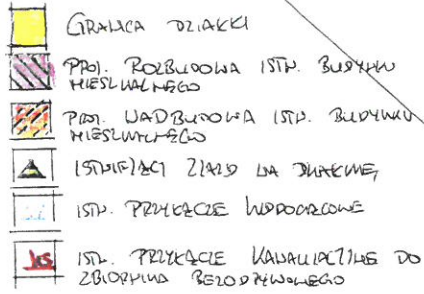 GRANICA DZIAŁKI
PROJ. ROZBUDOWA ISTN. BUDYNKU
MIESZKALNEGO
PROJ. NADBUDOWA ISTN. BUDYNKU
MIESZKALNEGO
ISTNIEJĄCY ZJAZD NA DZIAŁKĘ
ISTN. PRZYŁĄCZE WODOCIĄGOWE
ks ISTN. PRZYŁĄCZE KANALIZACYJNE DO
ZBIORNIKA BEZODPŁYWOWEGO